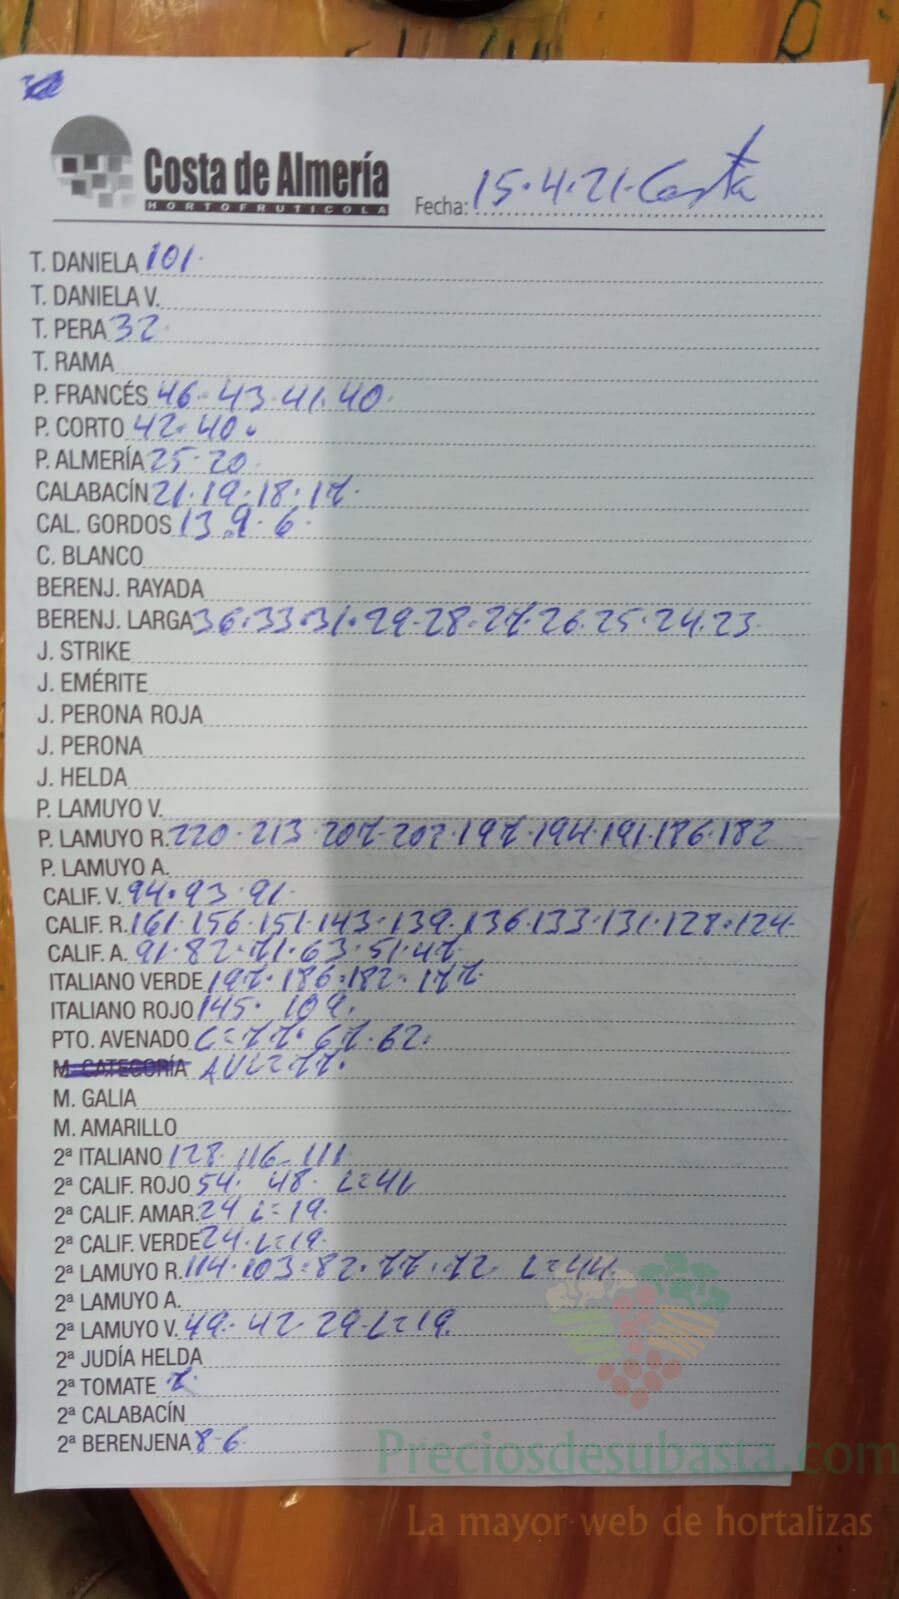 Costa de Almería
HORTOFRUTICOLA
Fecha: 15.4.21. Costa
T. DANIELA 101.
T. DANIELA V.
T. PERA 32
T. RAMA
P. FRANCÉS 46. 43. 41. 40.
P. CORTO 42. 40.
P. ALMERÍA 25. 20
CALABACÍN 21. 19. 18. 17.
CAL. GORDOS 13. 9. 6.
C. BLANCO
BERENJ. RAYADA
BERENJ. LARGA 36. 33. 31. 29. 28. 27. 26. 25. 24. 23.
J. STRIKE
J. EMÉRITE
J. PERONA ROJA
J. PERONA
J. HELDA
P. LAMUYO V.
P. LAMUYO R. 220. 213. 207. 202. 197. 194. 191. 186. 182
P. LAMUYO A.
CALIF. V. 94. 93. 91.
CALIF. R. 161. 156. 151. 143. 139. 136. 133. 131. 128. 124.
CALIF. A. 91. 82. 71. 63. 51. 47.
ITALIANO VERDE 197. 186. 182. 177.
ITALIANO ROJO 145. 109.
PTO. AVENADO C=77. 67. 62.
M. CATEGORÍA AVL=77.
M. GALIA
M. AMARILLO
2ª ITALIANO 128. 116. 111
2ª CALIF. ROJO 54. 48. L=41
2ª CALIF. AMAR. 24 L=19.
2ª CALIF. VERDE 24. L=19.
2ª LAMUYO R. 114. 103. 82. 77. 72. L=44.
2ª LAMUYO A.
2ª LAMUYO V. 49. 42. 29. L=19.
2ª JUDÍA HELDA
2ª TOMATE 7.
2ª CALABACÍN
2ª BERENJENA 8-6
Preciosdesubasta.com
La mayor web de hortalizas